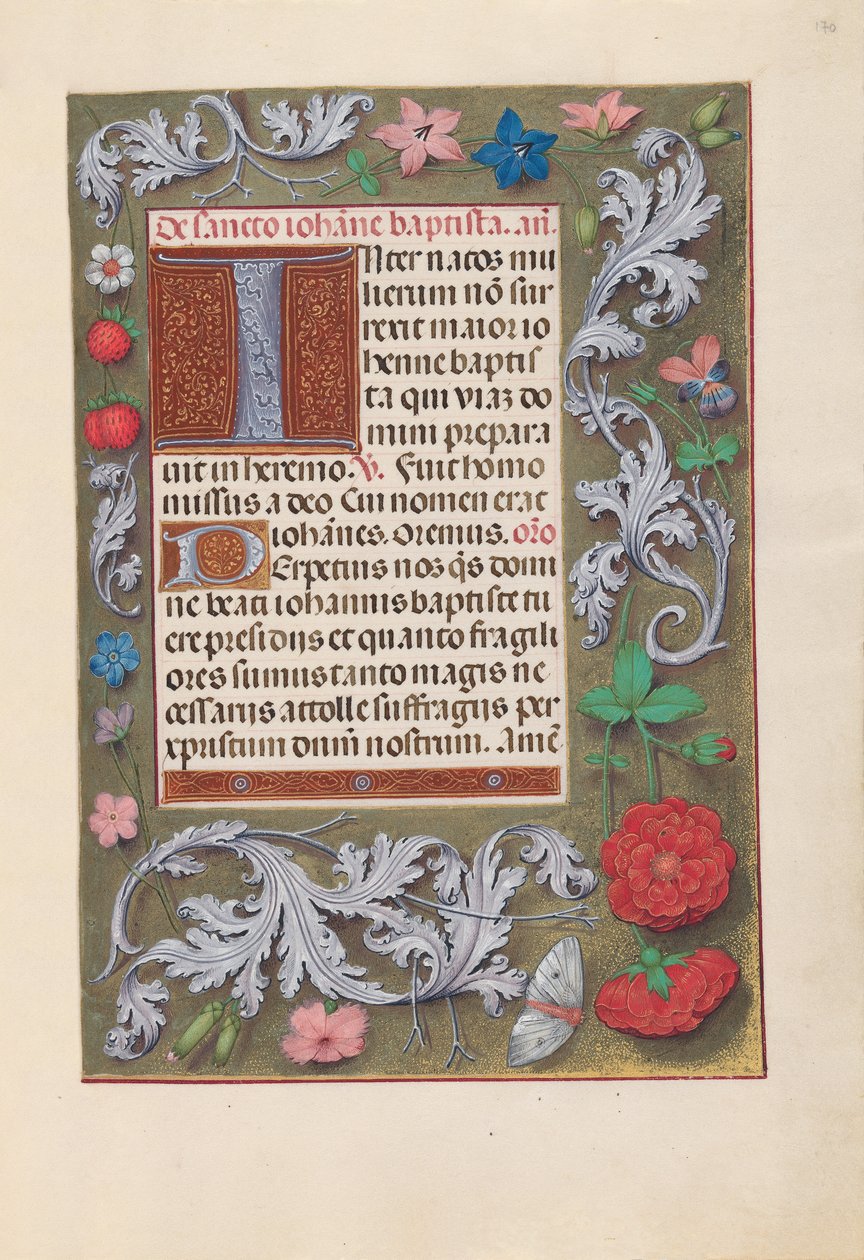 170
De sancto iohāne baptista. añ.
INter natos mu
lierum nō sur
rexit maior io
henne baptis
ta qui viaz do
mini prepara
uit in heremo. V. Fuit homo
missus a deo Cui nomen erat
iohānes. Oremus. orō
PErpetuis nos q̄s domi
ne beati iohannis baptiste tu
ere presidijs et quanto fragili
ores sumus tanto magis ne
cessarijs attolle suffragijs per
xpristum dnm̄ nostrum. Amē